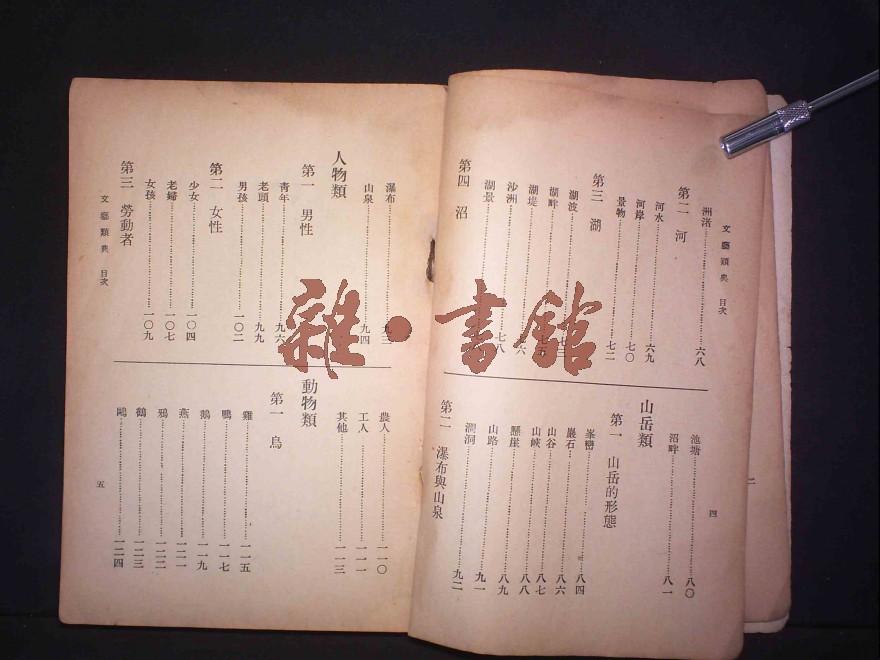 文藝類典 目次
四
洲渚……六八
第二 河
河水……六九
河岸……七〇
景物……七二
第三 湖
湖波
湖畔
湖堤
沙洲
湖景……七八
第四 沼
池塘……八〇
沼畔……八一
山岳類
第一 山岳的形態
峯巒……八四
巖石……八六
山谷……八七
山峽……八八
懸崖……八九
山路……九一
澗洞……九二
第二 瀑布與山泉
瀑布……九三
山泉……九四
人物類
第一 男性
青年……九六
老頭……九九
男孩……一〇二
第二 女性
少女……一〇四
老婦……一〇七
女孩……一〇九
第三 勞動者
文藝類典 目次
五
農人……一一〇
工人……一一一
其他……一一三
動物類
第一 鳥
雞……一一五
鴨……一一七
鵝……一一九
燕……一二一
鴉……一二二
鶴……一二三
鷗……一二四
雜·書館